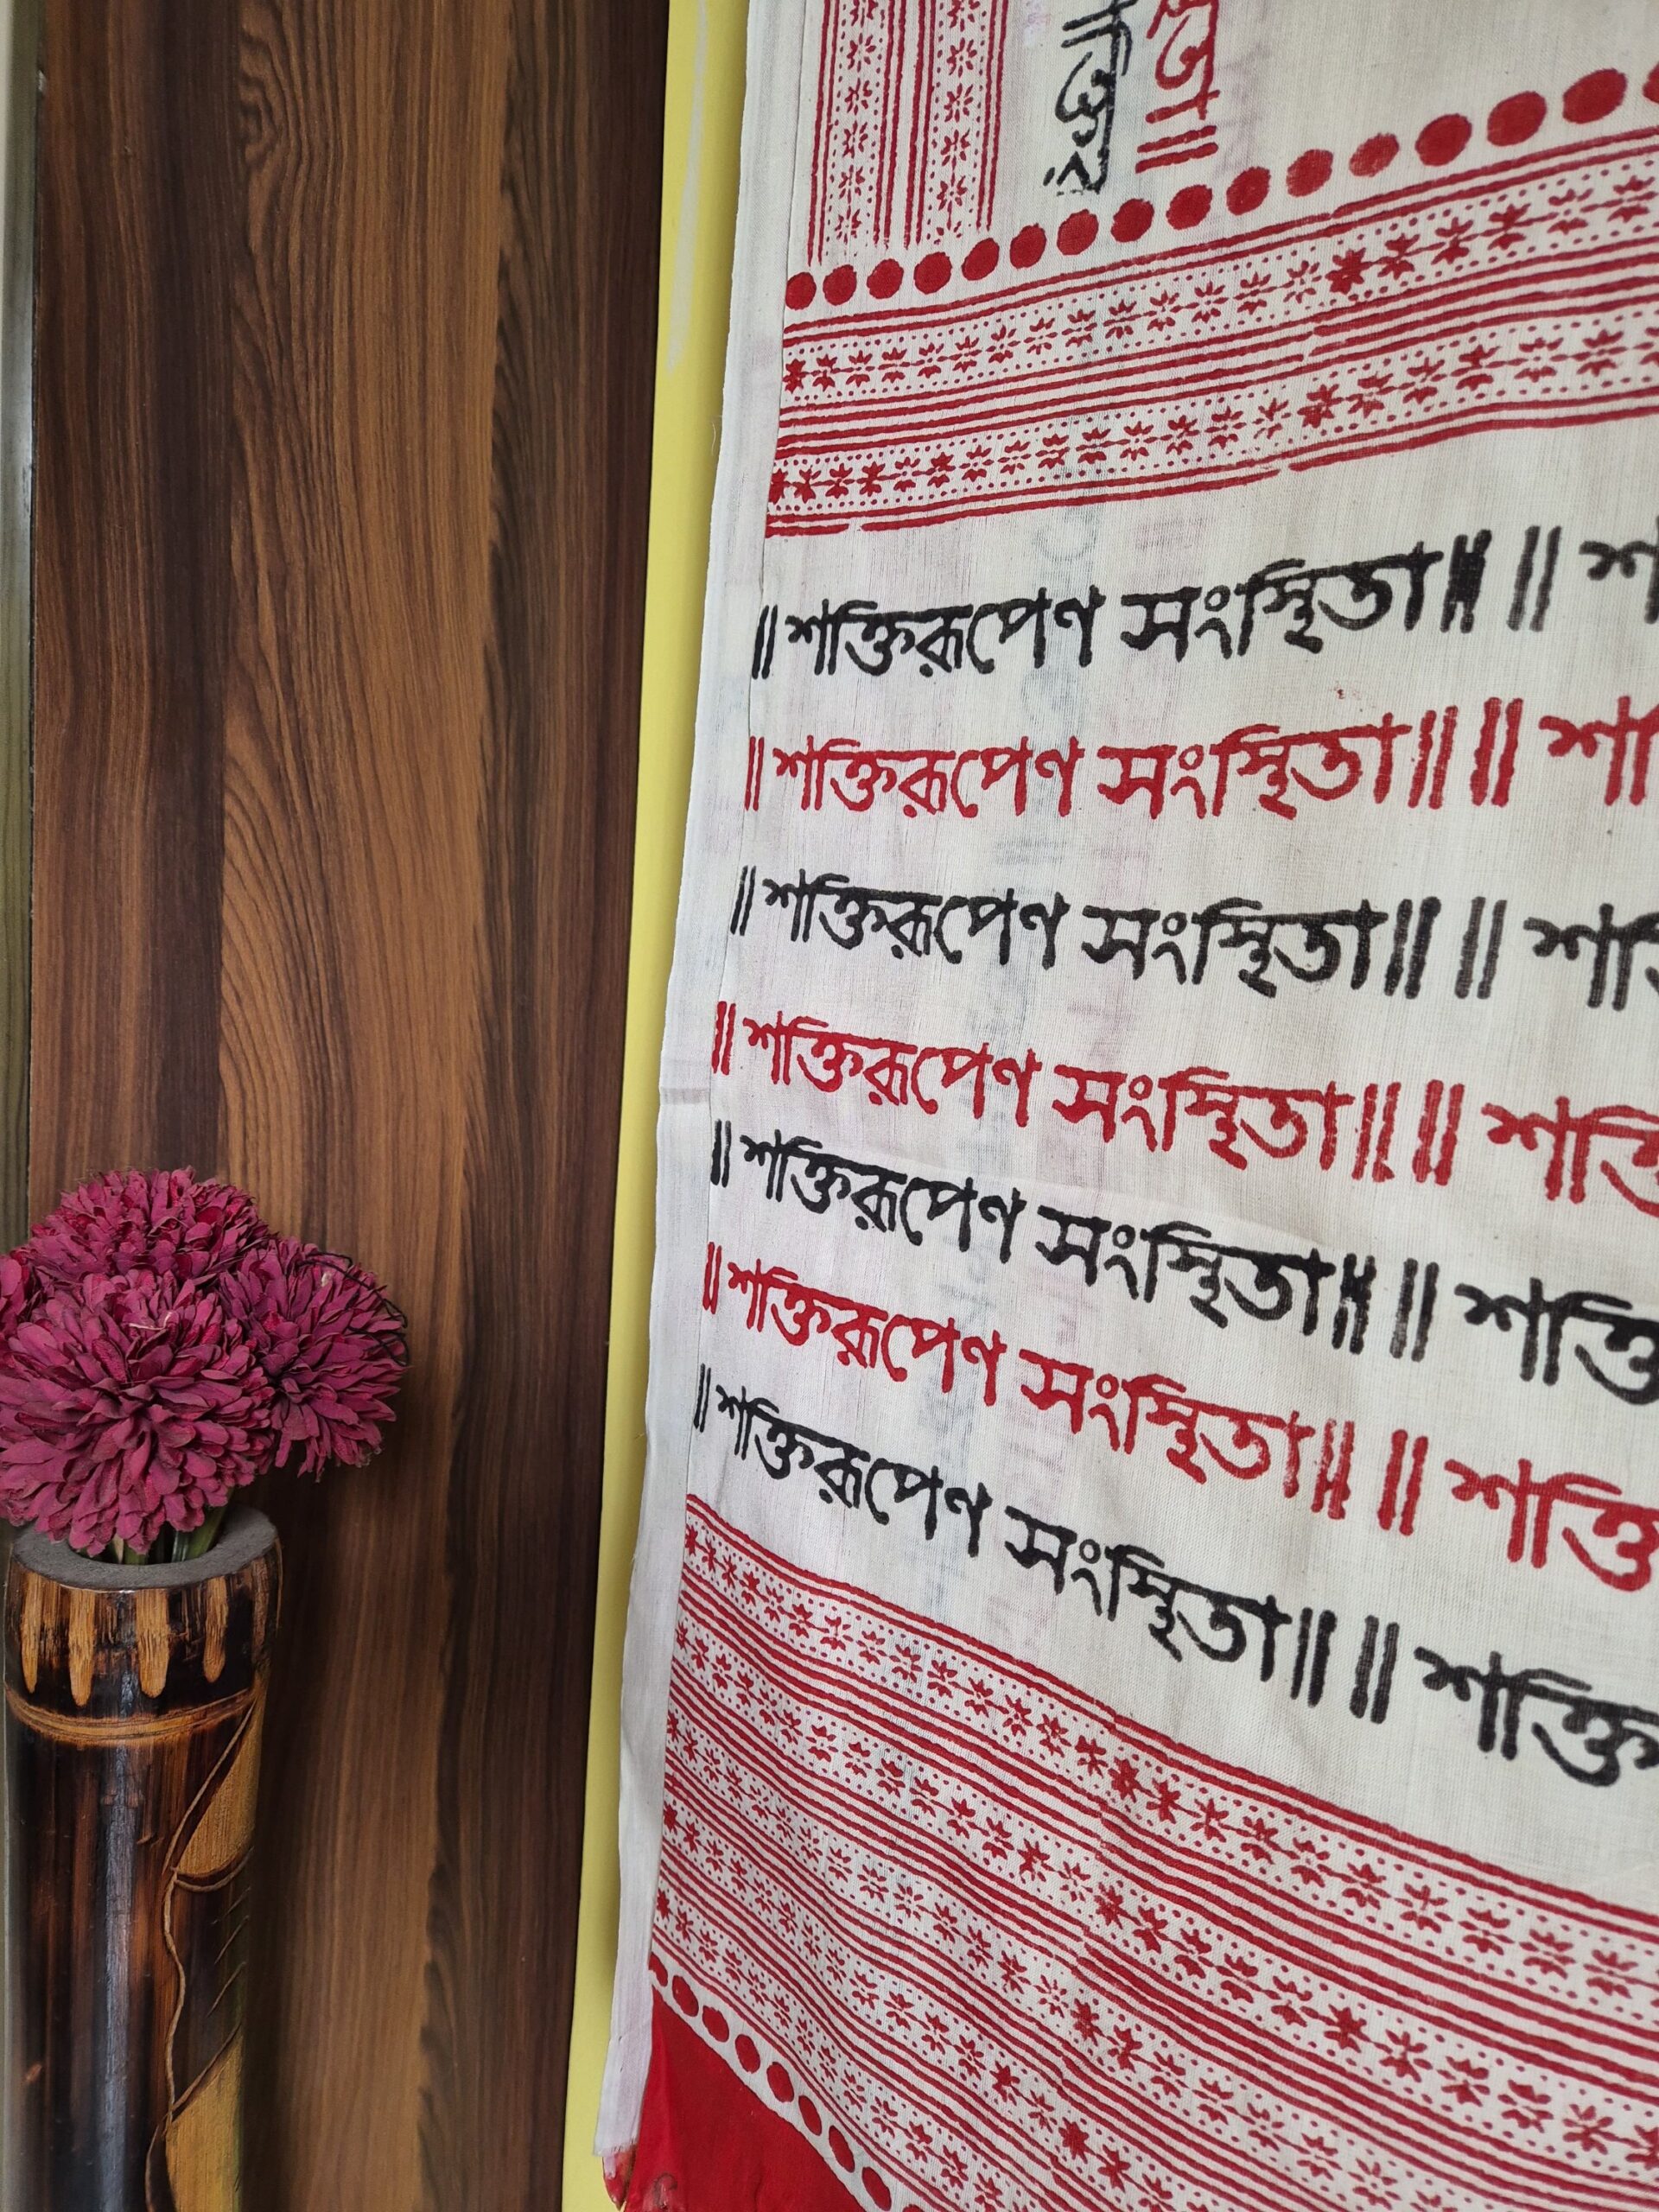 ॥ শক্তিরূপেণ সংস্থিতা॥ ॥
॥ শক্তিরূপেণ সংস্থিতা॥ ॥
॥ শক্তিরূপেণ সংস্থিতা॥ ॥
॥ শক্তিরূপেণ সংস্থিতা॥ ॥
॥ শক্তিরূপেণ সংস্থিতা॥ ॥
॥ শক্তিরূপেণ সংস্থিতা॥ ॥
॥ শক্তিরূপেণ সংস্থিতা॥ ॥